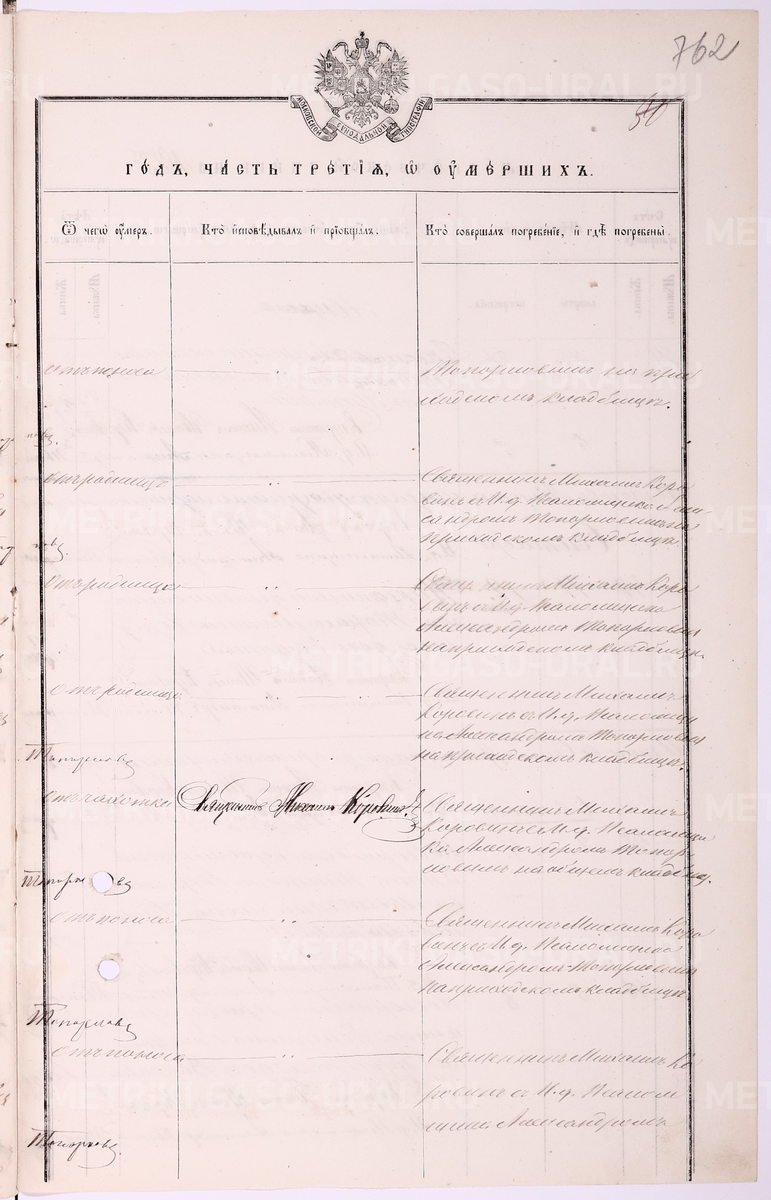 762
METRIKI.GASO-URAL.RU
МОСКОВСКОЙ СѴНОДАЛЬНОЙ ТИПОГРАФІИ
ГО́ДЪ, ЧА́СТЬ ТРЕ́ТІѦ, Ѡ҆ ОУ҆МЕ́РШИХЪ.
Ѿ чегѡ̀ оу҆́меръ.
Кто̀ и҆сповѣ́дывалъ и҆ прїѡбща́лъ.
Кто̀ соверша́лъ погребе́нїе, и҆ гдѣ̀ погребены̀.
отъ поноса
Топорковымъ на при
ходскомъ кладбищѣ.
отъ родимца
Священникъ Михаилъ Коро
винъ съ И. д. Псаломщика Алек
сандромъ Топорковымъ на
приходскомъ кладбищѣ
отъ родимца
Священникъ Михаилъ Коро
винъ съ И. д. Псаломщика
Александромъ Топорковымъ
на приходскомъ кладбищѣ.
отъ родимца
Священникъ Михаилъ
Коровинъ съ И. д. Псаломщи
ка Александромъ Топорковымъ
на приходскомъ кладбищѣ.
Топорковъ
отъ чахотки
Священникъ Михаилъ Коровинъ
Священникъ Михаилъ
Коровинъ съ И. д. Псаломщи
ка Александромъ Топор
ковымъ на общемъ кладбищ.
Топорковъ
отъ поноса
Священникъ Михаилъ Коро
винъ съ И. д. Псаломщика
Александромъ Топорковымъ
на приходскомъ кладбищѣ
Топорковъ
отъ поноса
Священникъ Михаилъ Ко
ровинъ съ И. д. Псалом
щика Александромъ
Топорковъ